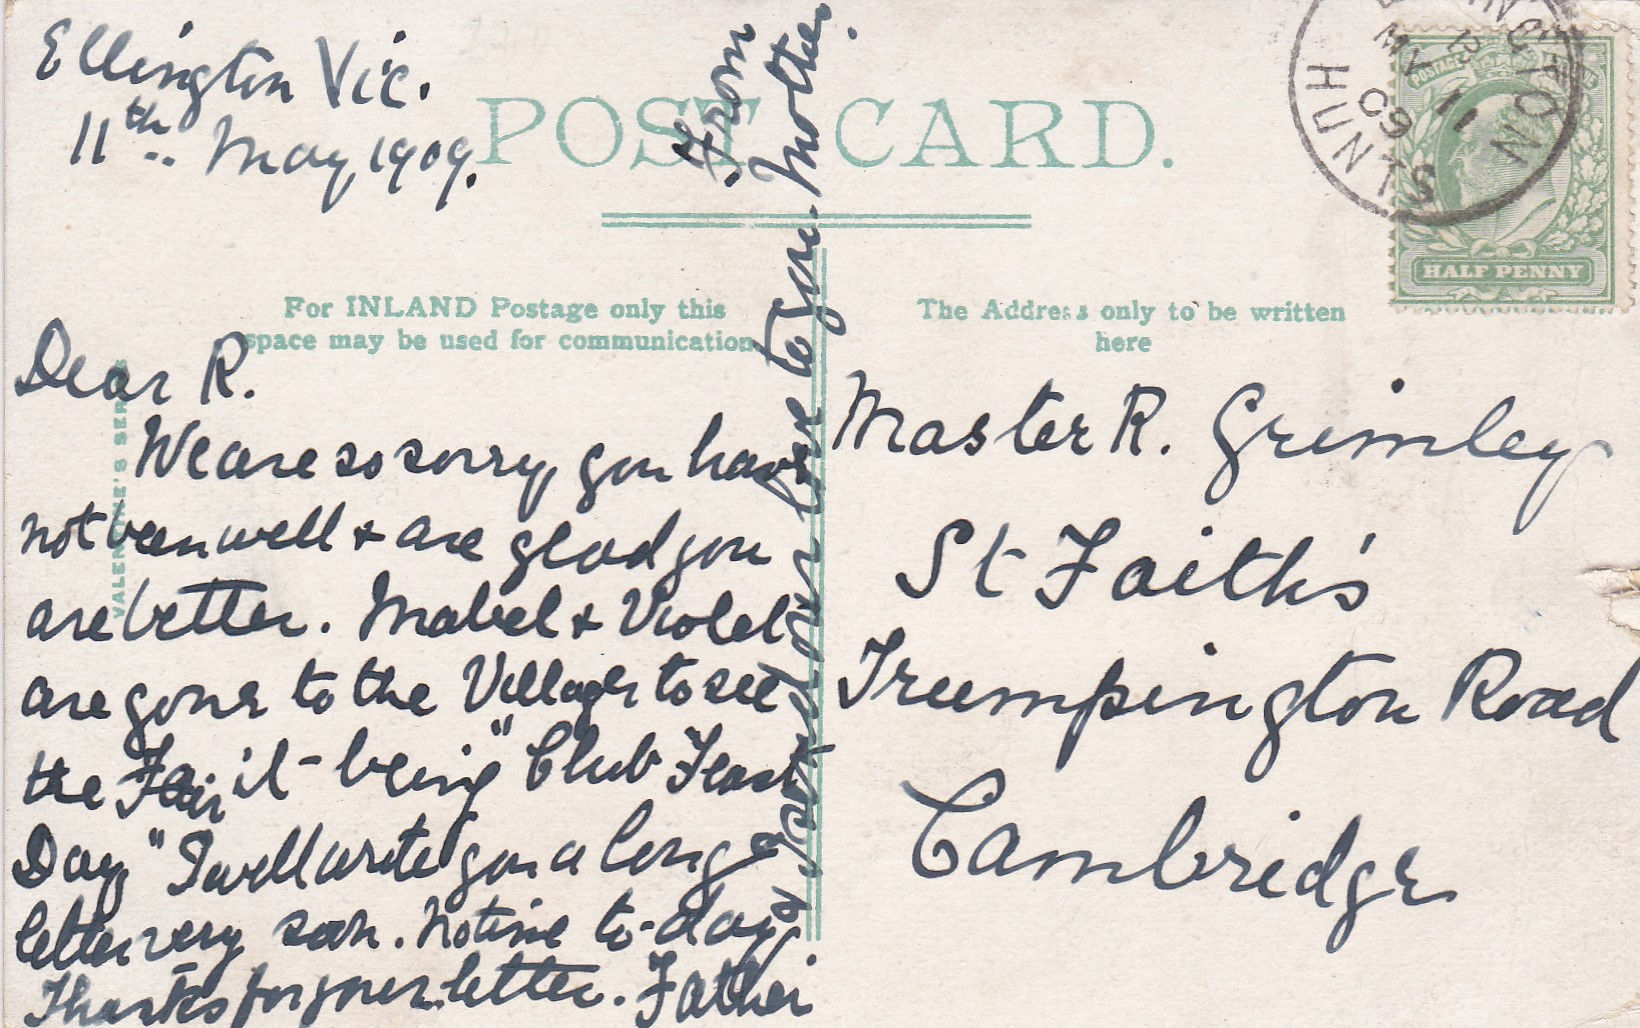 Ellington Vic.
11th.. May, 1909.
POST CARD.
ELLINGTON
B
MY 11
09
HUNTS
POSTAGE
HALF PENNY
For INLAND Postage only this
space may be used for communication
The Address only to be written
here
VALENTINE'S SERIES
Dear R.
We are so sorry you have
not been well & are glad you
are better. Mabel & Violet
are gone to the Village to see
the Fair it being "Club Feast
Day" I will write you a long
letter very soon. No time to-day
Thanks for your letter. Father
& I send our love to you. Mother.
From
Master R. Grimley
St Faith's
Trumpington Road
Cambridge